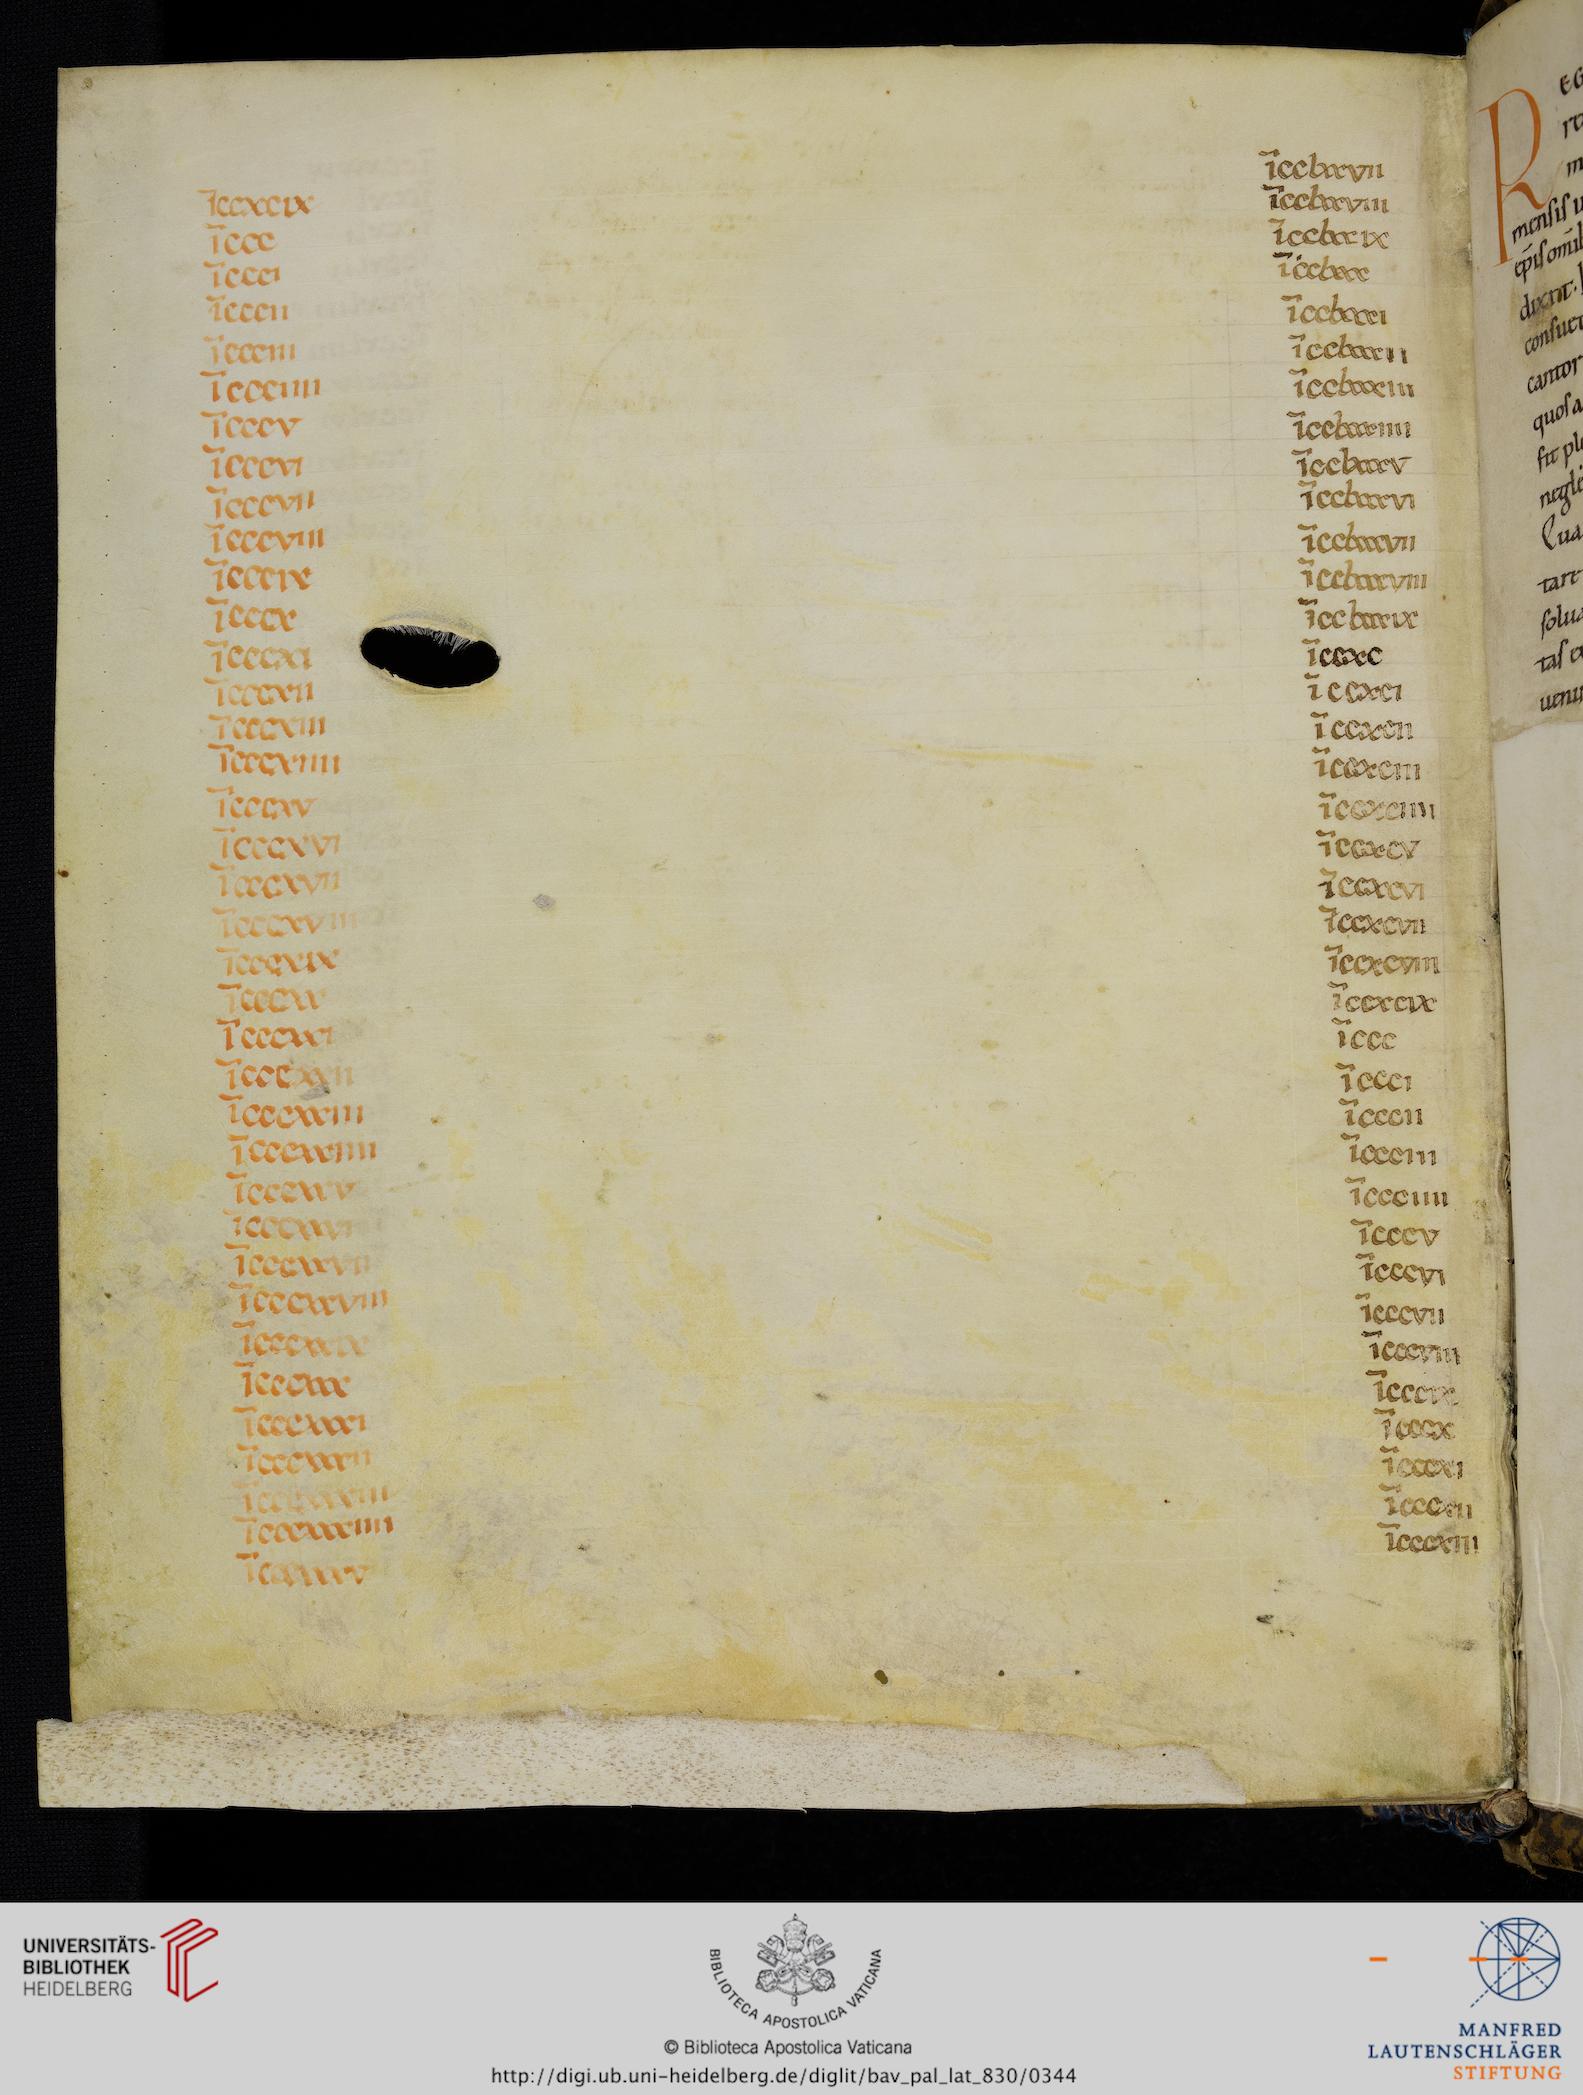 īccxcix
īccc
īccci
īcccii
īccciii
īccciiii
īcccv
īcccvi
īcccvii
īcccviii
īcccix
īcccx
īcccxi
īcccxii
īcccxiii
īcccxiiii
īcccxv
īcccxvi
īcccxvii
īcccxviii
īcccxix
īcccxx
īcccxxi
īcccxxii
īcccxxiii
īcccxxiiii
īcccxxv
īcccxxvi
īcccxxvii
īcccxxviii
īcccxxix
īcccxxx
īcccxxxi
īcccxxxii
īcccxxxiii
īcccxxxiiii
īcccxxxv
īcclxxvii
īcclxxviii
īcclxxix
īcclxxx
īcclxxxi
īcclxxxii
īcclxxxiii
īcclxxxiiii
īcclxxxv
īcclxxxvi
īcclxxxvii
īcclxxxviii
īcclxxxix
īccxc
īccxci
īccxcii
īccxciii
īccxciiii
īccxcv
īccxcvi
īccxcvii
īccxcviii
īccxcix
īccc
īccci
īcccii
īccciii
īccciiii
īcccv
īcccvi
īcccvii
īcccviii
īcccix
īcccx
īcccxi
īcccxii
īcccxiii
R
mensis u
cantor
quos a
fit
Qua
tare
UNIVERSITÄTS-
BIBLIOTHEK
HEIDELBERG
BIBLIOTECA APOSTOLICA VATICANA
© Biblioteca Apostolica Vaticana
http://digi.ub.uni-heidelberg.de/diglit/bav_pal_lat_830/0344
MANFRED
LAUTENSCHLÄGER
STIFTUNG